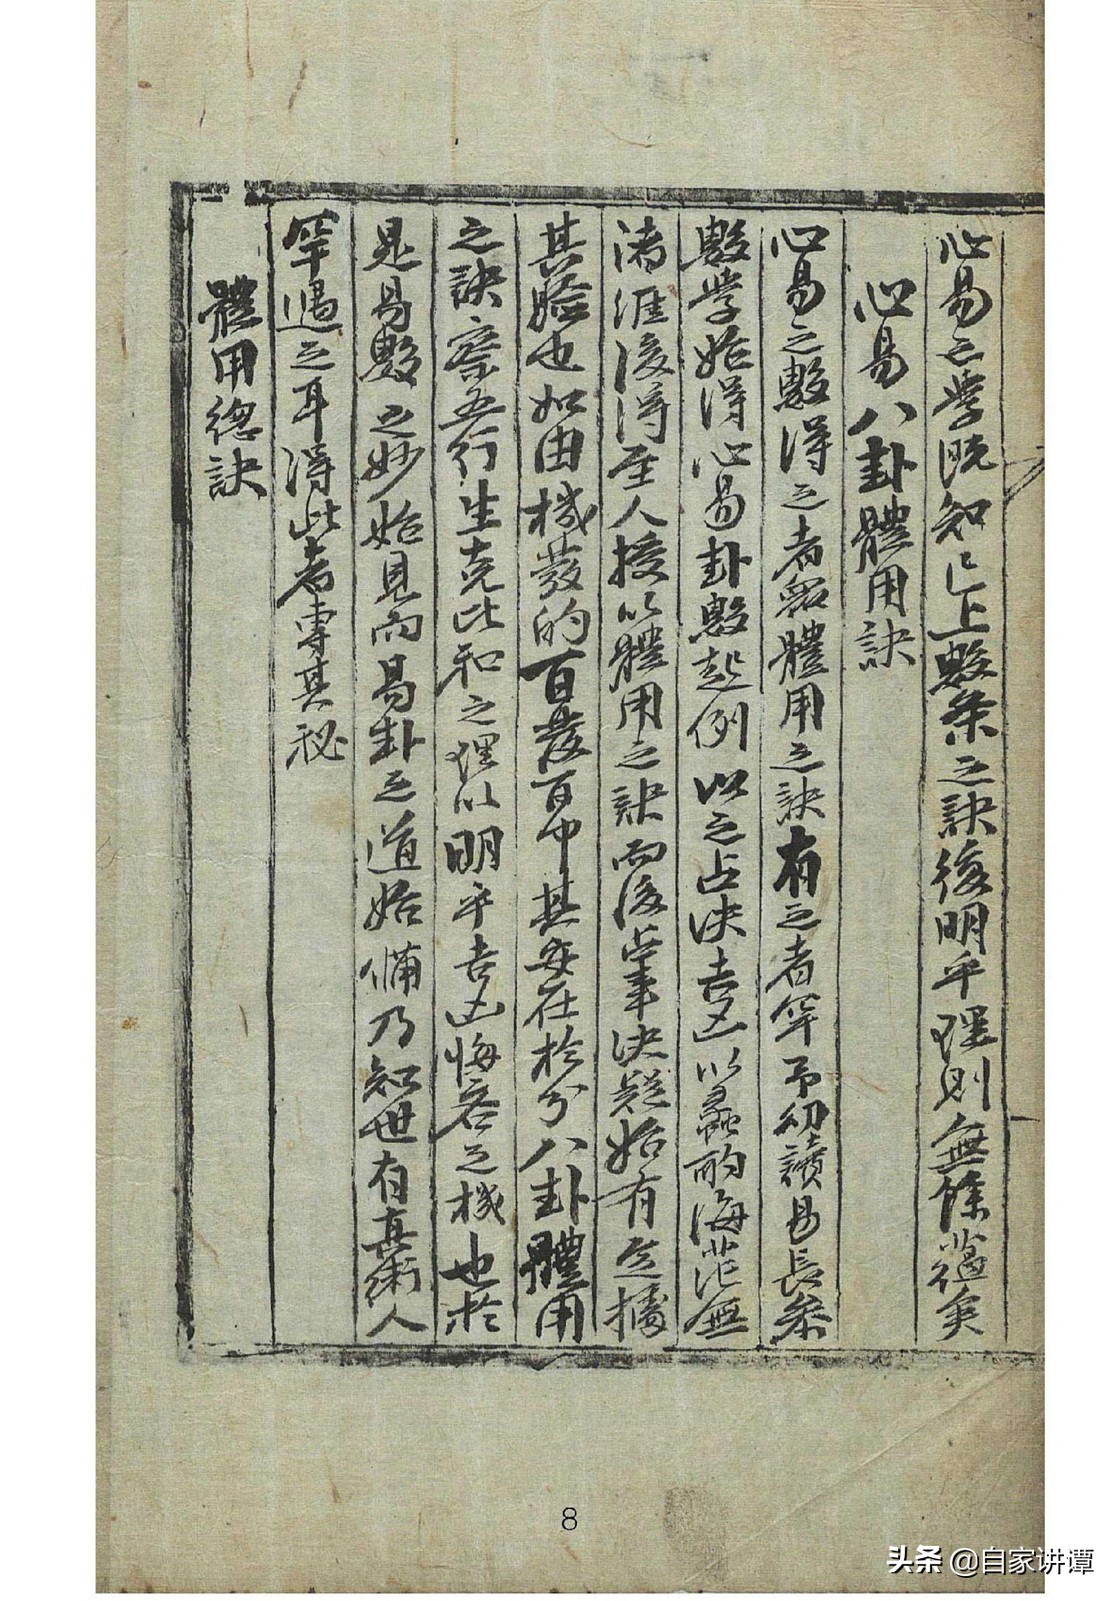 心易之學既知已上數条之訣後明乎理則無餘蘊矣
心易八卦體用訣
心易之數得之者衆體用之訣有之者罕予幼讀易長参
數學始得心易卦數起例以之占决吉凶以蠡酌海茫無
涯後得至人授以體用之訣而後占事决疑始有定據
其驗也如由機發的百發百中其妄在於分八卦體用
之訣察五行生克比和之理以明乎吉凶悔吝之機也於
是易數之妙始見而易卦之道始備乃知世有真術人
罕遇之耳得此者專其秘
體用總訣
8
头条 @自家讲谭